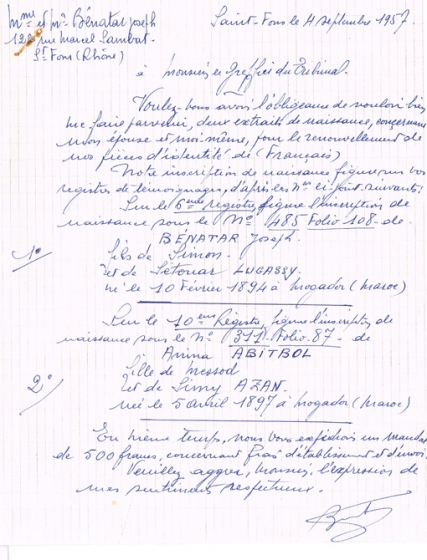 Mme et Mr Bénatar Joseph
rue Marcel Sembat-
St Fons (Rhône)
Saint-Fons le 4 septembre 1957.
à monsieur le Greffier du Tribunal.
Voulez-vous avoir l'obligeance de vouloir bien
me faire parvenir, deux extraits de naissance, concernant
mon épouse et moi même, pour le renouvellement de
nos pièces d'identité de (Français)
Notre inscription de naissance figure sur vos
registres de témoignages, d'après les Nos ci-joint suivants:
Sur le 6ème registre, figure l'inscription de
naissance sous le No 485 Folio-108- de-
BÉNATAR Joseph.
1o
fils de Simon.
et de Sétouar LUGASSY.
né le 10 Février 1894 à Mogador (Maroc)
Sur le 10ème Registre, figure l'inscription de
naissance sous le No 311-Folio-87- de
Anina ABITBOL
2o
fille de Messod
et de Simy AZAN.
née le 5 avril 1897 à Mogador (Maroc)
En même temps, nous vous expédions un mandat
de 500 francs, concernant frais d'établissement et d'envoi.
Veuillez agréer, monsieur, l'expression de
mes sentiments respectueux.